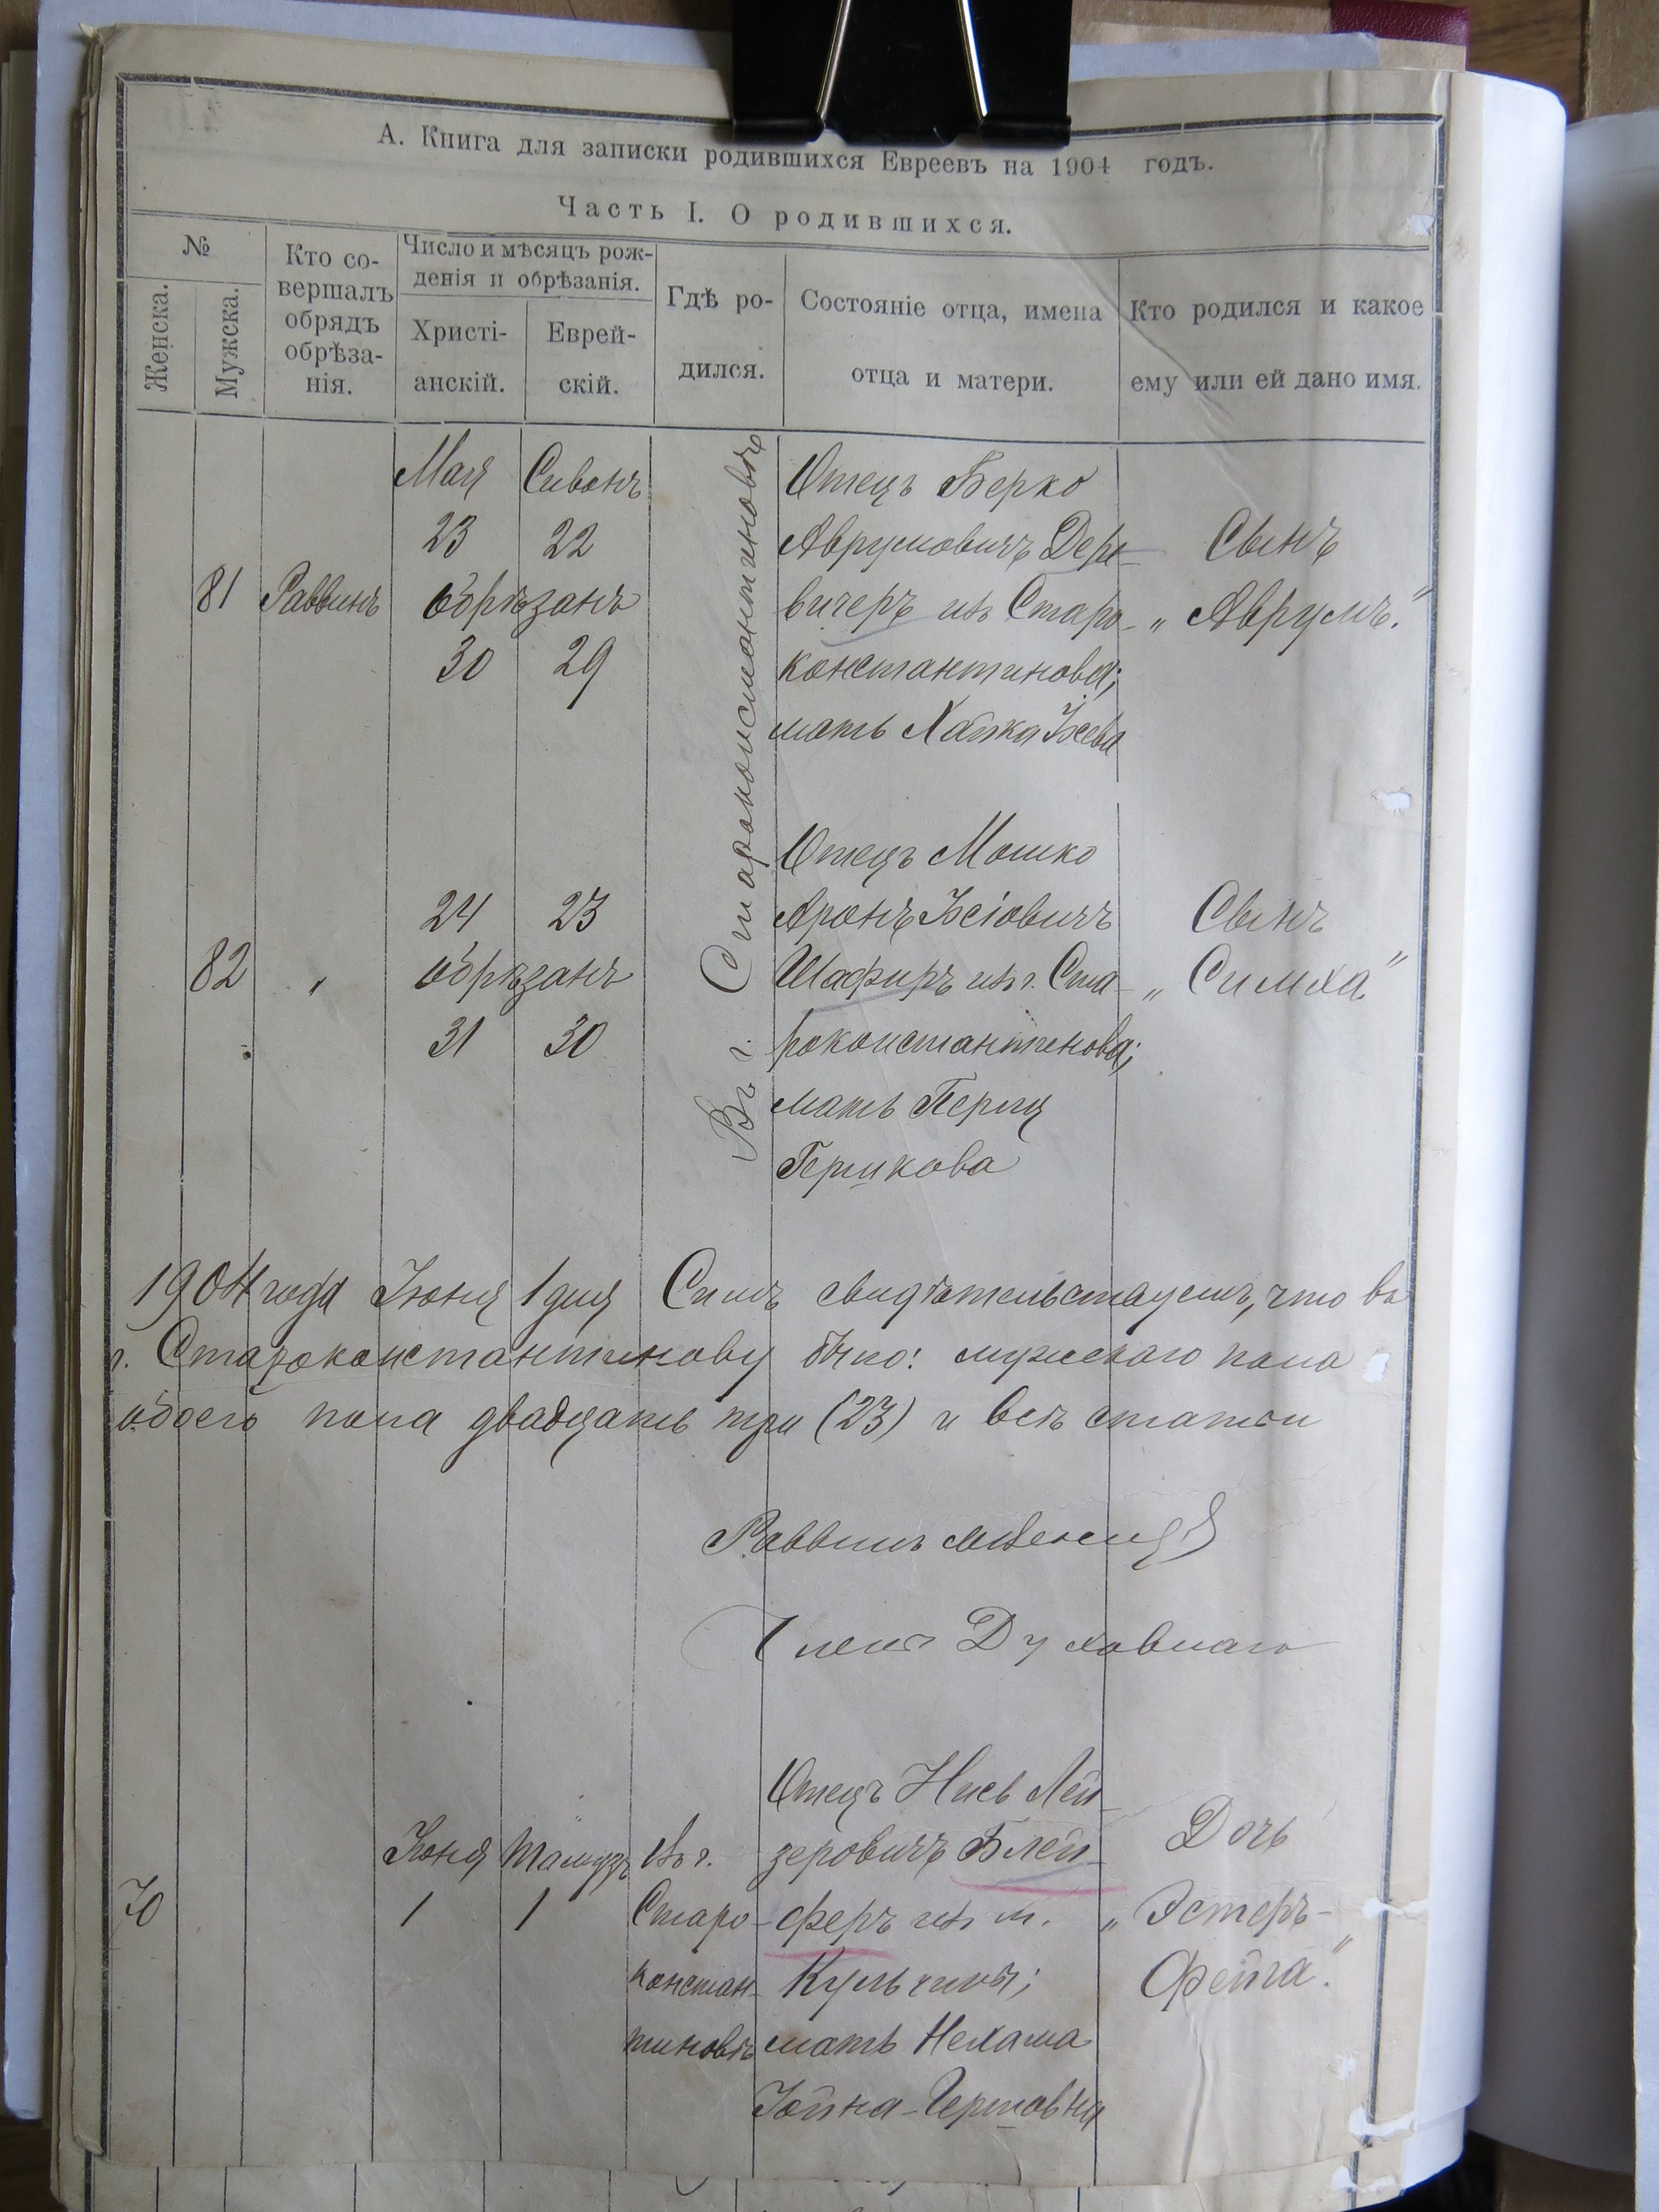 А. Книга для записки родившихся Евреевъ на 1904 годъ.
Часть I. О родившихся.
№
Женска.
Мужска.
Кто со-
вершалъ
обрядъ
обрѣза-
нія.
Число и мѣсяцъ рож-
денія и обрѣзанія.
Христі-
анскій.
Еврей-
скій.
Гдѣ ро-
дился.
Состояніе отца, имена
отца и матери.
Кто родился и какое
ему или ей дано имя.
81
Раввинъ
Мая Сиванъ
23 22
обрѣзанъ
30 29
Въ г. Староконстантиновѣ
Отецъ Берко
Аврумовичъ Дере-
вичеръ изъ Старо-
константинова;
мать Хайка
Сынъ
„Аврумъ.“
82
„
24 23
обрѣзанъ
31 30
Отецъ Мошко
Аронъ Іосіовичъ
Шафиръ изъ г. Ста-
роконстантинова;
мать Перля
Гершкова
Сынъ
„Симха“
1904 года Іюня 1 дня Симъ свидѣтельствуемъ, что въ
г. Староконстантинову было: мужескаго пола
обоего пола двадцать три (23) и всѣ статьи
Раввинъ
Членъ Духовнаго
70
Іюня Тамузъ
1 1
Въ г.
Старо-
констан-
тиновѣ
Отецъ Нись Лей-
зеровичъ Блей-
феръ изъ м.
Кульчинъ;
мать Нехама
Іойна-Гершовна
Дочь
„Эстеръ-
Фейга.“